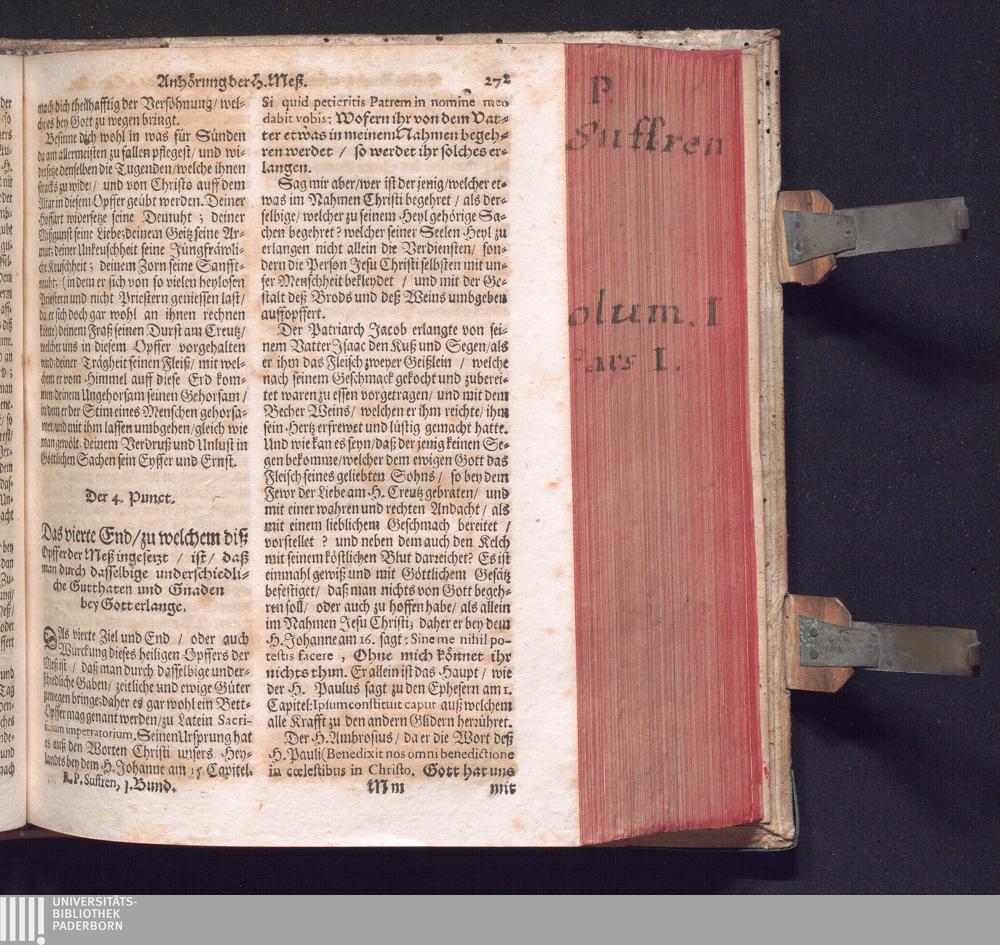 Anhörung der H. Meß. 272
mach dich theilhafftig der Versöhnung / wel-
ches er bey Gott zu wegen bringt.
Besinne dich wohl in was für Sünden
du am allermeisten zu fallen pflegest / und wi-
dersetze denselben die Tugenden / welche ihnen
stracks zu wider / und von Christo auff dem
Altar in diesem Opffer geübt werden. Deiner
Hoffart widersetze seine Demuht ; deiner
Mißgunst seine Liebe: deinem Geitz seine Ar-
mut; deiner Unkeuschheit seine Jüngfräwli-
che Keuschheit ; deinem Zorn seine Sanfft-
muht; (in dem er sich von so vielen heylosen
Priestern und nicht Priestern geniessen last /
da er sich doch gar wohl an ihnen rechnen
könte) deinem Fraß seinen Durst am Creutz /
welcher uns in diesem Opffer vorgehalten
wird: deiner Trägheit seinen Fleiß / mit wel-
chem er vom Himmel auff diese Erd kom-
men deinem Ungehorsam seinen Gehorsam /
in dem er der Stim eines Menschen gehorsa-
met und mit ihm lassen umbgehen / gleich wie
man gewölt. deinem Verdruß und Unlust in
Göttlichen Sachen sein Eyffer und Ernst.
Der 4. Punct.
Das vierte End / zu welchem diß
Opffer der Meß ingesetzt / ist / daß
man durch dasselbige underschiedli-
che Gutthaten und Gnaden
bey Gott erlange.
DAs vierte Ziel und End / oder auch
Würckung dieses heiligen Opffers der
Meß ist / daß man durch dasselbige under-
schiedliche Gaben / zeitliche und ewige Güter
zuwegen bringe: daher es gar wohl ein Bett-
Opffer mag genant werden / zu Latein Sacri-
ficium impetratorium. Seinen Ursprung hat
es auß den Worten Christi unsers Hey-
landts bey dem H. Johanne am 15. Capitel.
R. P. Suffren, 1. Bund.
Si quid petieritis Patrem in nomine meo
dabit vobis: Wofern ihr von dem Vat-
ter etwas in meinem Nahmen begeh-
ren werdet / so werdet ihr solches er-
langen.
Sag mir aber / wer ist der jenig / welcher et-
was im Nahmen Christi begehret / als der-
selbige / welcher zu seinem Heyl gehörige Sa-
chen begehret ? welcher seiner Seelen Heyl zu
erlangen nicht allein die Verdiensten / son-
dern die Person Jesu Christi selbsten mit un-
ser Menschheit bekleydet / und mit der Ge-
stalt deß Brods und deß Weins umbgeben
auffopffert.
Der Patriarch Jacob erlangte von sei-
nem Vatter Isaac den Kuß und Segen / als
er ihm das Fleisch zweyer Geißlein / welche
nach seinem Geschmack gekocht und zuberei-
tet waren zu essen vorgetragen / und mit dem
Becher Weins / welchen er ihm reichte / ihm
sein Hertz erfrewet und lüstig gemacht hatte.
Und wie kan es seyn / daß der jenig keinen Se-
gen bekomme / welcher dem ewigen Gott das
Fleisch seines geliebten Sohns / so bey dem
Fewr der Liebe am H. Creutz gebraten / und
mit einer wahren und rechten Andacht / als
mit einem lieblichem Geschmach bereitet /
vorstellet ? und neben dem auch den Kelch
mit seinem köstlichen Blut darzeichet? Es ist
einmahl gewiß und mit Göttlichem Gesätz
befestiget / daß man nichts von Gott begeh-
ren soll / oder auch zu hoffen habe / als allein
im Nahmen Jesu Christi; daher er bey dem
H. Johanne am 16. sagt: Sine me nihil po-
testis facere , Ohne mich könnet ihr
nichts thun. Er allein ist das Haupt / wie
der H. Paulus sagt zu den Ephesern am 1.
Capitel: Ipsum constituit caput auß welchem
alle Krafft zu den andern Glidern herzühret.
Der H. Ambrosius / da er die Wort deß
H. Pauli (Benedixit nos omni benedictione
in cœlestibus in Christo. Gott hat uns
Mm mit
P.
Suffren
olum. I
Pars I.
UNIVERSITÄTS-
BIBLIOTHEK
PADERBORN